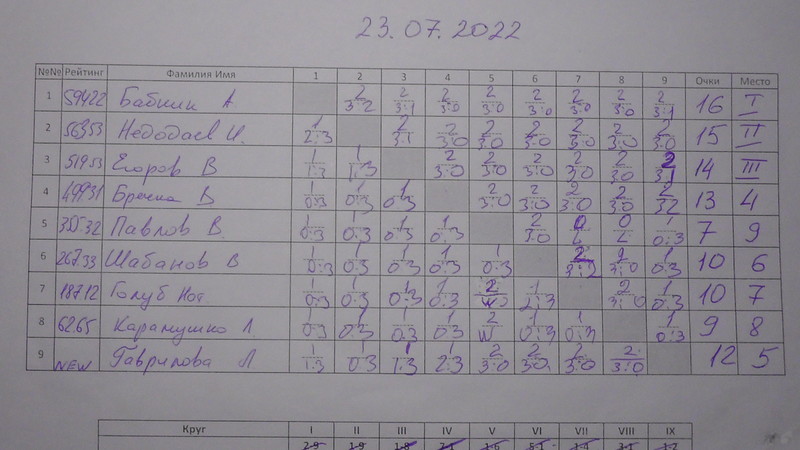 23.07.2022
№№ Рейтинг Фамилия Имя 1 2 3 4 5 6 7 8 9 Очки Место
1 594.22 Бабкин А 2 3:2 2 3:1 2 3:0 2 3:0 2 3:0 2 3:0 2 3:0 2 3:1 16 I
2 563.53 Недодаев И. 1 2:3 2 3:1 2 3:0 2 3:0 2 3:0 2 3:0 2 3:0 2 3:0 15 II
3 519.53 Егоров В 1 1:3 1 1:3 2 3:0 2 3:0 2 3:0 2 3:0 2 3:0 2 3:1 14 III
4 499.31 В 1 0:3 1 0:3 1 0:3 2 3:0 2 3:0 2 3:0 2 3:0 2 3:2 13 4
5 Павлов В. 1 0:3 1 0:3 1 0:3 1 0:3 2 3:0 0 L 0 L 1 0:3 7 9
6 267.33 Шабанов В 1 0:3 1 0:3 1 0:3 1 0:3 1 0:3 2 3:2 2 3:0 1 0:3 10 6
7 187.12 Голуб Нат. 1 0:3 1 0:3 1 0:3 1 0:3 2 W 1 2:3 2 3:0 1 0:3 10 7
8 62.65 Карамушко Л 1 0:3 1 0:3 1 0:3 1 0:3 2 W 1 0:3 1 0:3 1 0:3 9 8
9 NEW Гаврилова Л 1 1:3 1 0:3 1 1:3 1 2:3 2 3:0 2 3:0 2 3:0 2 3:0 12 5
Круг I II III IV V VI VII VIII IX
2-9 1-9 1-8 1-6 5-1 1-4 3-1 1-2